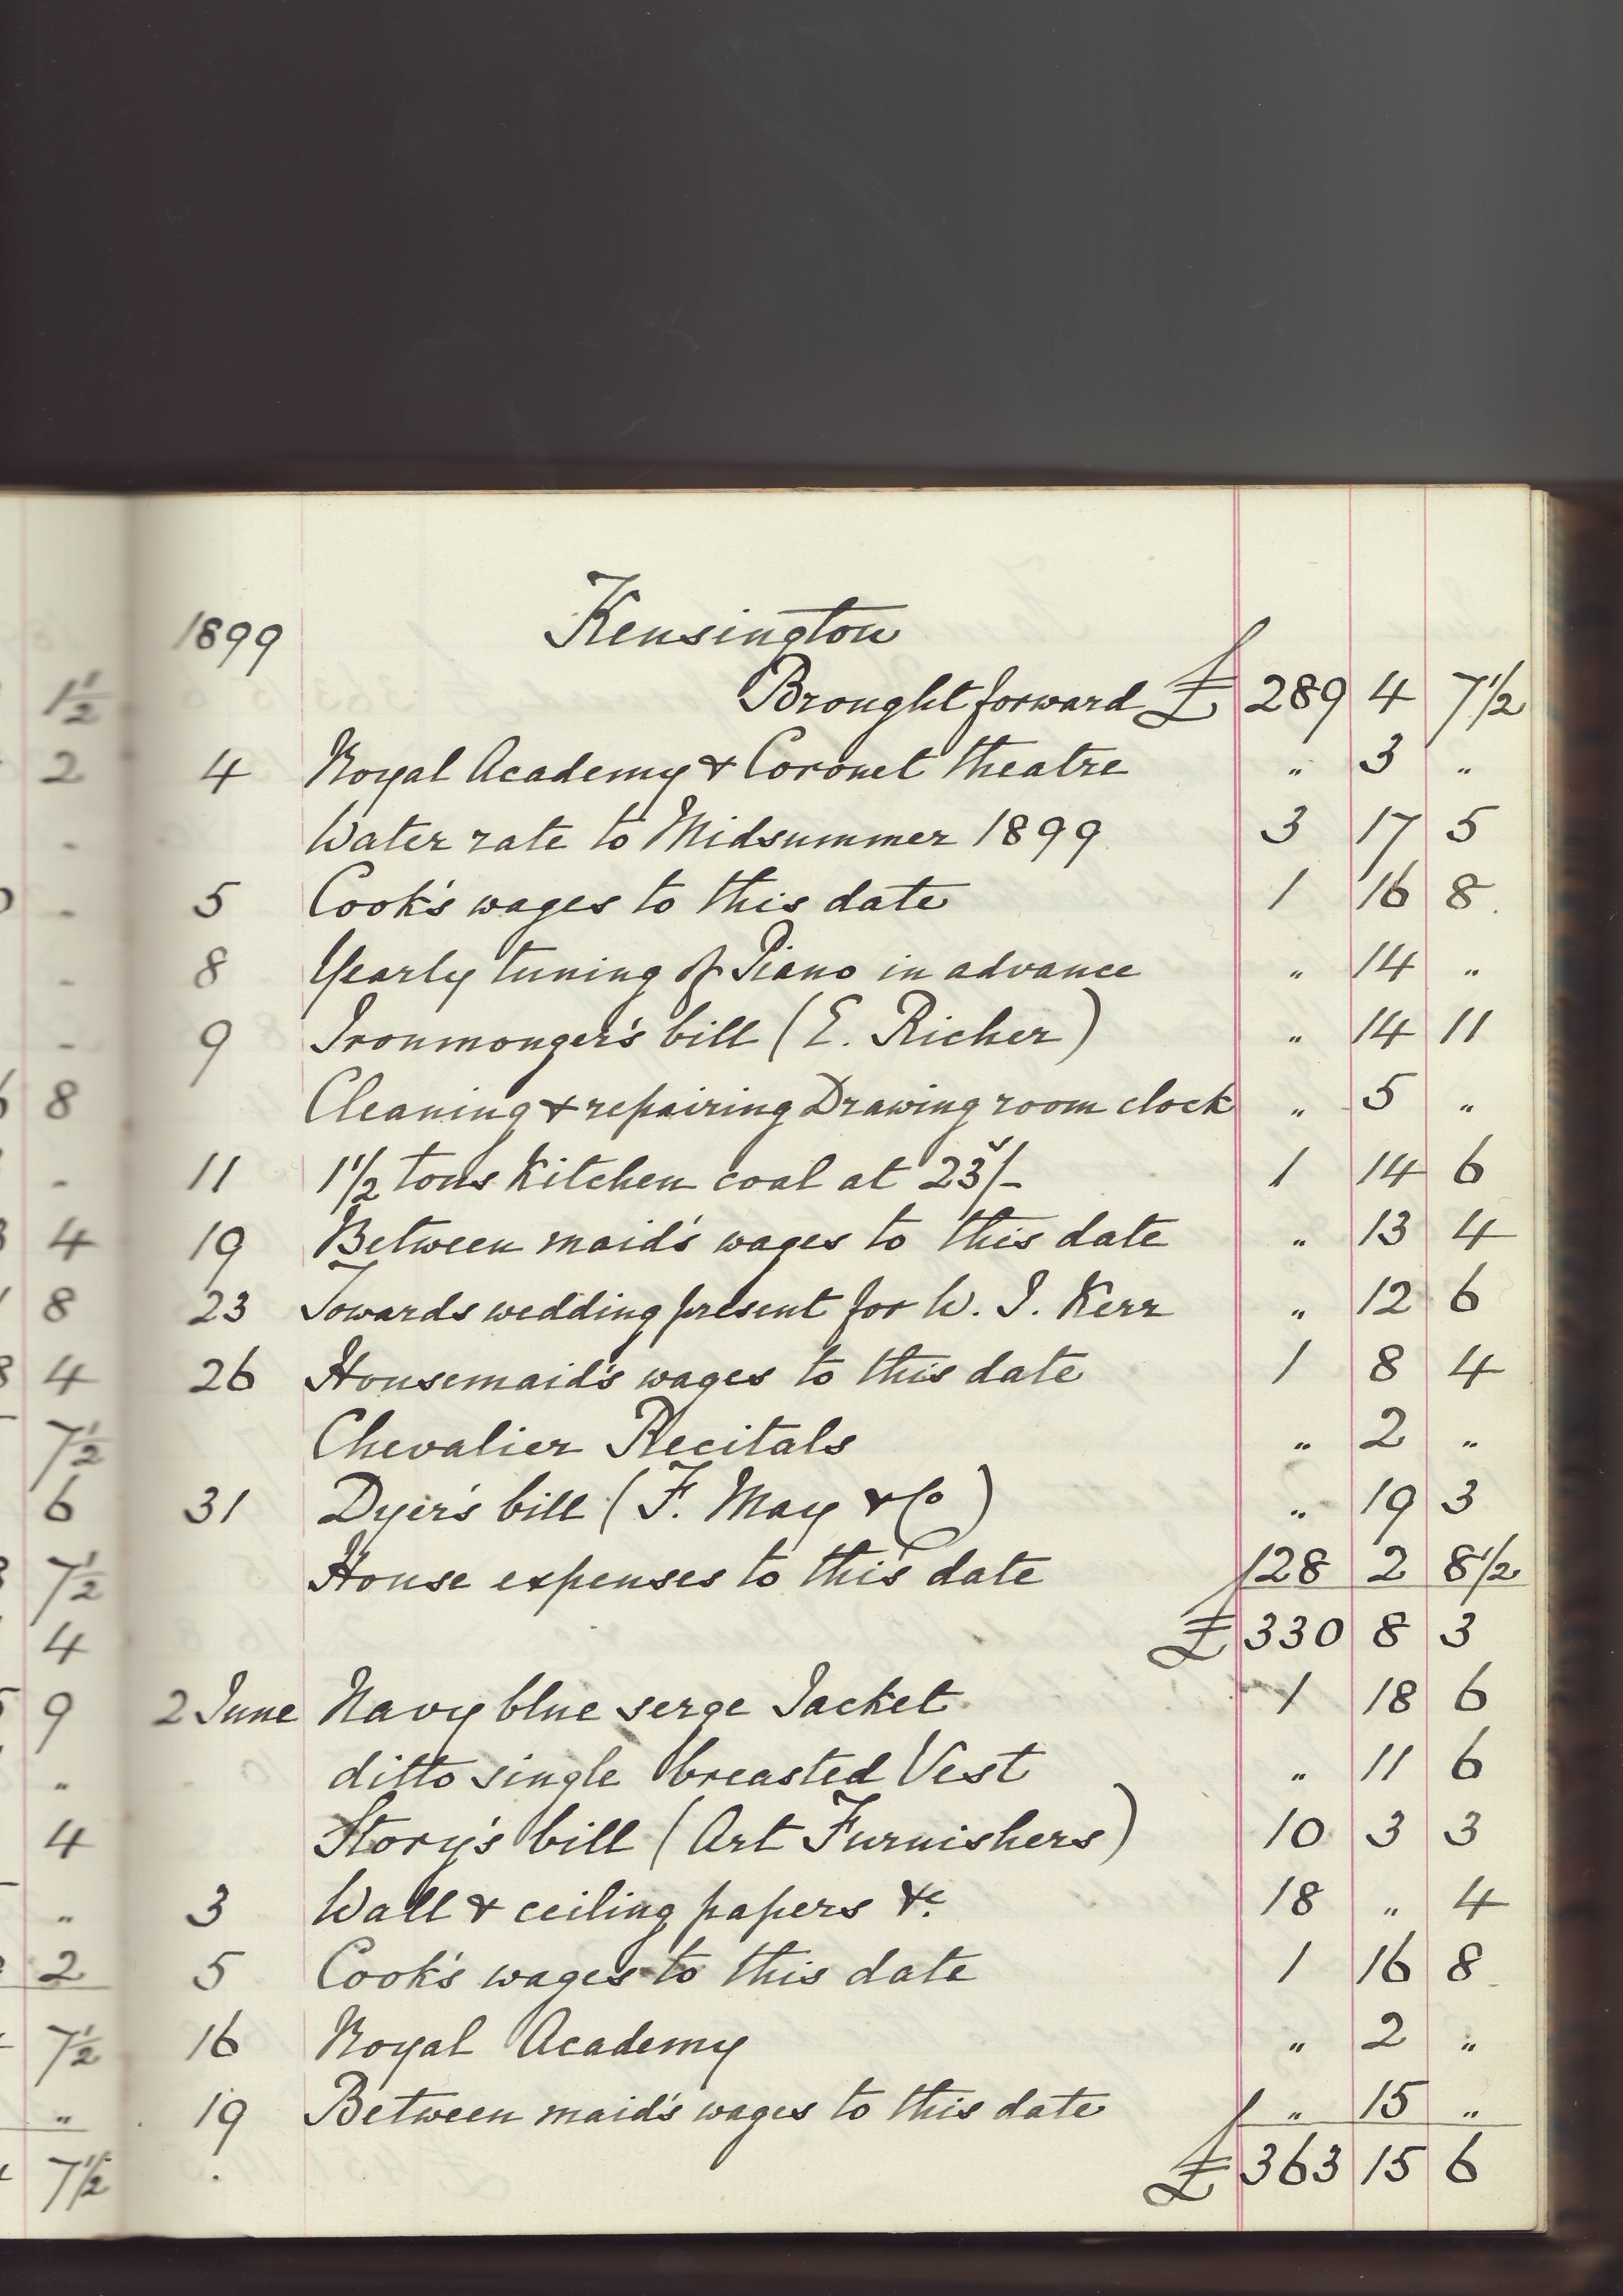 1½
2
-
-
-
-
8
-
4
8
4
7½
6
7½
4
9
"
4
"
2
7½
"
7½
1899 Kensington
Brought forward £ 289 4 7½
4 Royal Academy & Coronet theatre " 3 "
Water rate to Midsummer 1899 3 17 5
5 Cook's wages to this date 1 16 8
8 Yearly tuning of Piano in advance " 14 "
9 Ironmonger's bill (E. Richer) " 14 11
Cleaning & repairing Drawing room clock " 5 "
11 1½ tons Kitchen coal at 23s/- 1 14 6
19 Between maid's wages to this date " 13 4
23 Towards wedding present for W. J. Kerr " 12 6
26 Housemaid's wages to this date 1 8 4
Chevalier Recitals " 2 "
31 Dyer's bill (F. May & Co) " 19 3
House expenses to this date 28 2 8½
£ 330 8 3
2 June Navy blue serge Jacket 1 18 6
ditto single breasted Vest " 11 6
Story's bill (Art Furnishers) 10 3 3
3 Wall & ceiling papers &c. 18 " 4
5 Cook's wages to this date 1 16 8
16 Royal Academy " 2 "
19 Between maid's wages to this date " 15 "
£ 363 15 6